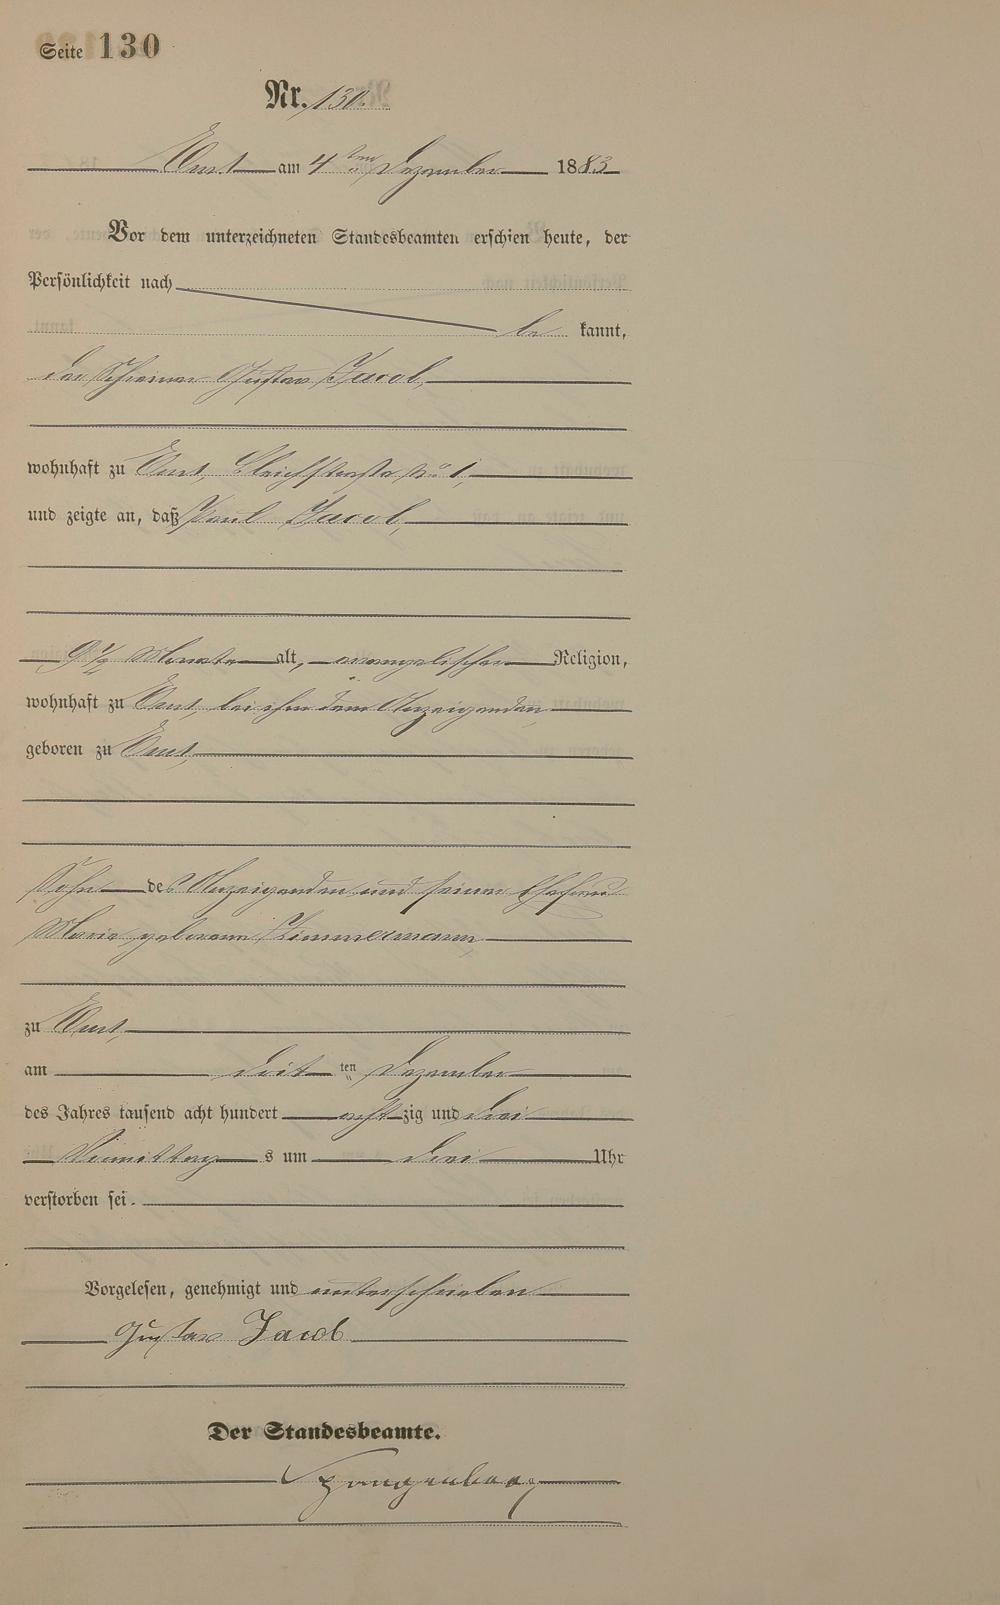 Seite 130
Nr. 130.
Ems am 4ten Dezember 1883
Vor dem unterzeichneten Standesbeamten erschien heute, der
Persönlichkeit nach
be kannt,
der Schreiner Gustav Jacob,
wohnhaft zu Ems, Bleichstraße No 1,
und zeigte an, daß Paul Jacob,
9 1/2 Monate alt, evangelischer Religion,
wohnhaft zu Ems, bei ihm dem Anzeigenden
geboren zu Ems,
Sohn des Anzeigenden und seiner Ehefrau
Marie, geborene Zimmermann,
zu Ems,
am ten Dezember
des Jahres tausend acht hundert acht zig und drei
Vormittag s um drei Uhr
verstorben sei.
Vorgelesen, genehmigt und unterschrieben
Gustav Jacob
Der Standesbeamte.
Spangenberg